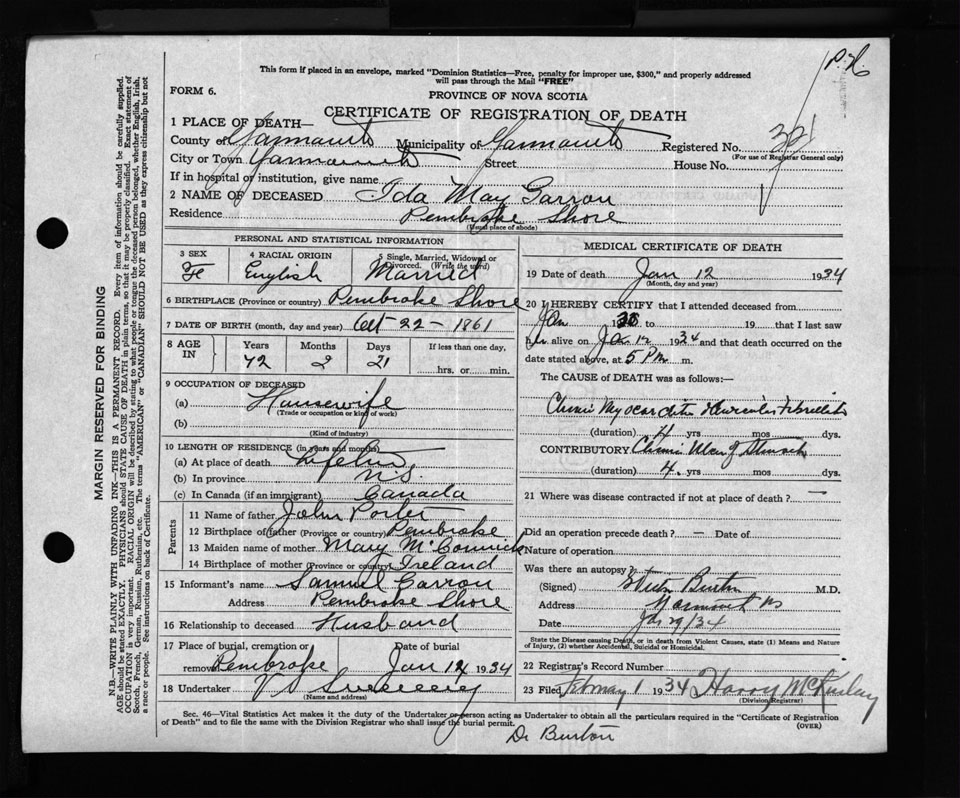 P.H.
This form if placed in an envelope, marked "Dominion Statistics—Free, penalty for improper use, $300," and properly addressed
will pass through the Mail "FREE"
FORM 6.
PROVINCE OF NOVA SCOTIA
CERTIFICATE OF REGISTRATION OF DEATH
1 PLACE OF DEATH—
County of Yarmouth Municipality of Yarmouth Registered No. 321
(For use of Registrar General only)
City or Town Yarmouth Street House No.
If in hospital or institution, give name
2 NAME OF DECEASED Ida May Garron
Residence Pembroke Shore
(Usual place of abode)
PERSONAL AND STATISTICAL INFORMATION
3 SEX Fe
4 RACIAL ORIGIN English
5 Single, Married, Widowed or Divorced. (Write the word) Married
6 BIRTHPLACE (Province or country) Pembroke Shore
7 DATE OF BIRTH (month, day and year) Oct - 22 - 1861
8 AGE IN Years Months Days If less than one day,
72 2 21 hrs. or min.
9 OCCUPATION OF DECEASED
(a) Housewife
(Trade or occupation or kind of work)
(b)
(Kind of industry)
10 LENGTH OF RESIDENCE (in years and months)
(a) At place of death Lifetime
(b) In province N.S.
(c) In Canada (if an immigrant) Canada
Parents
11 Name of father John Porter
12 Birthplace of father (Province or country) Pembroke
13 Maiden name of mother Mary McCormick
14 Birthplace of mother (Province or country) Ireland
15 Informant's name Samuel Garron
Address Pembroke Shore
16 Relationship to deceased Husband
17 Place of burial, cremation or removal Pembroke Date of burial Jan 14 1934
18 Undertaker V S Sweeney
(Name and address)
MEDICAL CERTIFICATE OF DEATH
19 Date of death Jan 12 1934
(Month, day and year)
20 I HEREBY CERTIFY that I attended deceased from
Jan 1930 to 19 that I last saw
her alive on Jan 12 1934 and that death occurred on the
date stated above, at 5 PM m.
The CAUSE of DEATH was as follows:—
Chronic Myocarditis Auricular Fibrillation
(duration) 4 yrs mos dys.
CONTRIBUTORY Chronic Ulcer of Stomach
(duration) 4. yrs mos dys.
21 Where was disease contracted if not at place of death? —
Did an operation precede death? — Date of
Nature of operation
Was there an autopsy
(Signed) Burton M.D.
Address Yarmouth NS
Date Jan 29/34
State the Disease causing Death, or in death from Violent Causes, state (1) Means and Nature
of Injury, (2) whether Accidental, Suicidal or Homicidal.
22 Registrar's Record Number
23 Filed February 1 1934 Harry McKinlay
(Division Registrar)
Sec. 46—Vital Statistics Act makes it the duty of the Undertaker or person acting as Undertaker to obtain all the particulars required in the "Certificate of Registration
of Death" and to file the same with the Division Registrar who shall issue the burial permit. (OVER)
Dr Burton
MARGIN RESERVED FOR BINDING
N.B.—WRITE PLAINLY WITH UNFADING INK—THIS IS A PERMANENT RECORD. Every item of information should be carefully supplied.
AGE should be stated EXACTLY. PHYSICIANS should STATE CAUSE OF DEATH in plain terms, so that it may be properly classified. Exact statement of
OCCUPATION is very important. RACIAL ORIGIN will be described by stating to what people or tongue the deceased person belonged, whether English, Irish,
Scotch, French, German, Russian, Ruthenian, etc. The terms "AMERICAN" or "CANADIAN" SHOULD NOT BE USED as they express citizenship but not
a race or people. See instructions on back of Certificate.